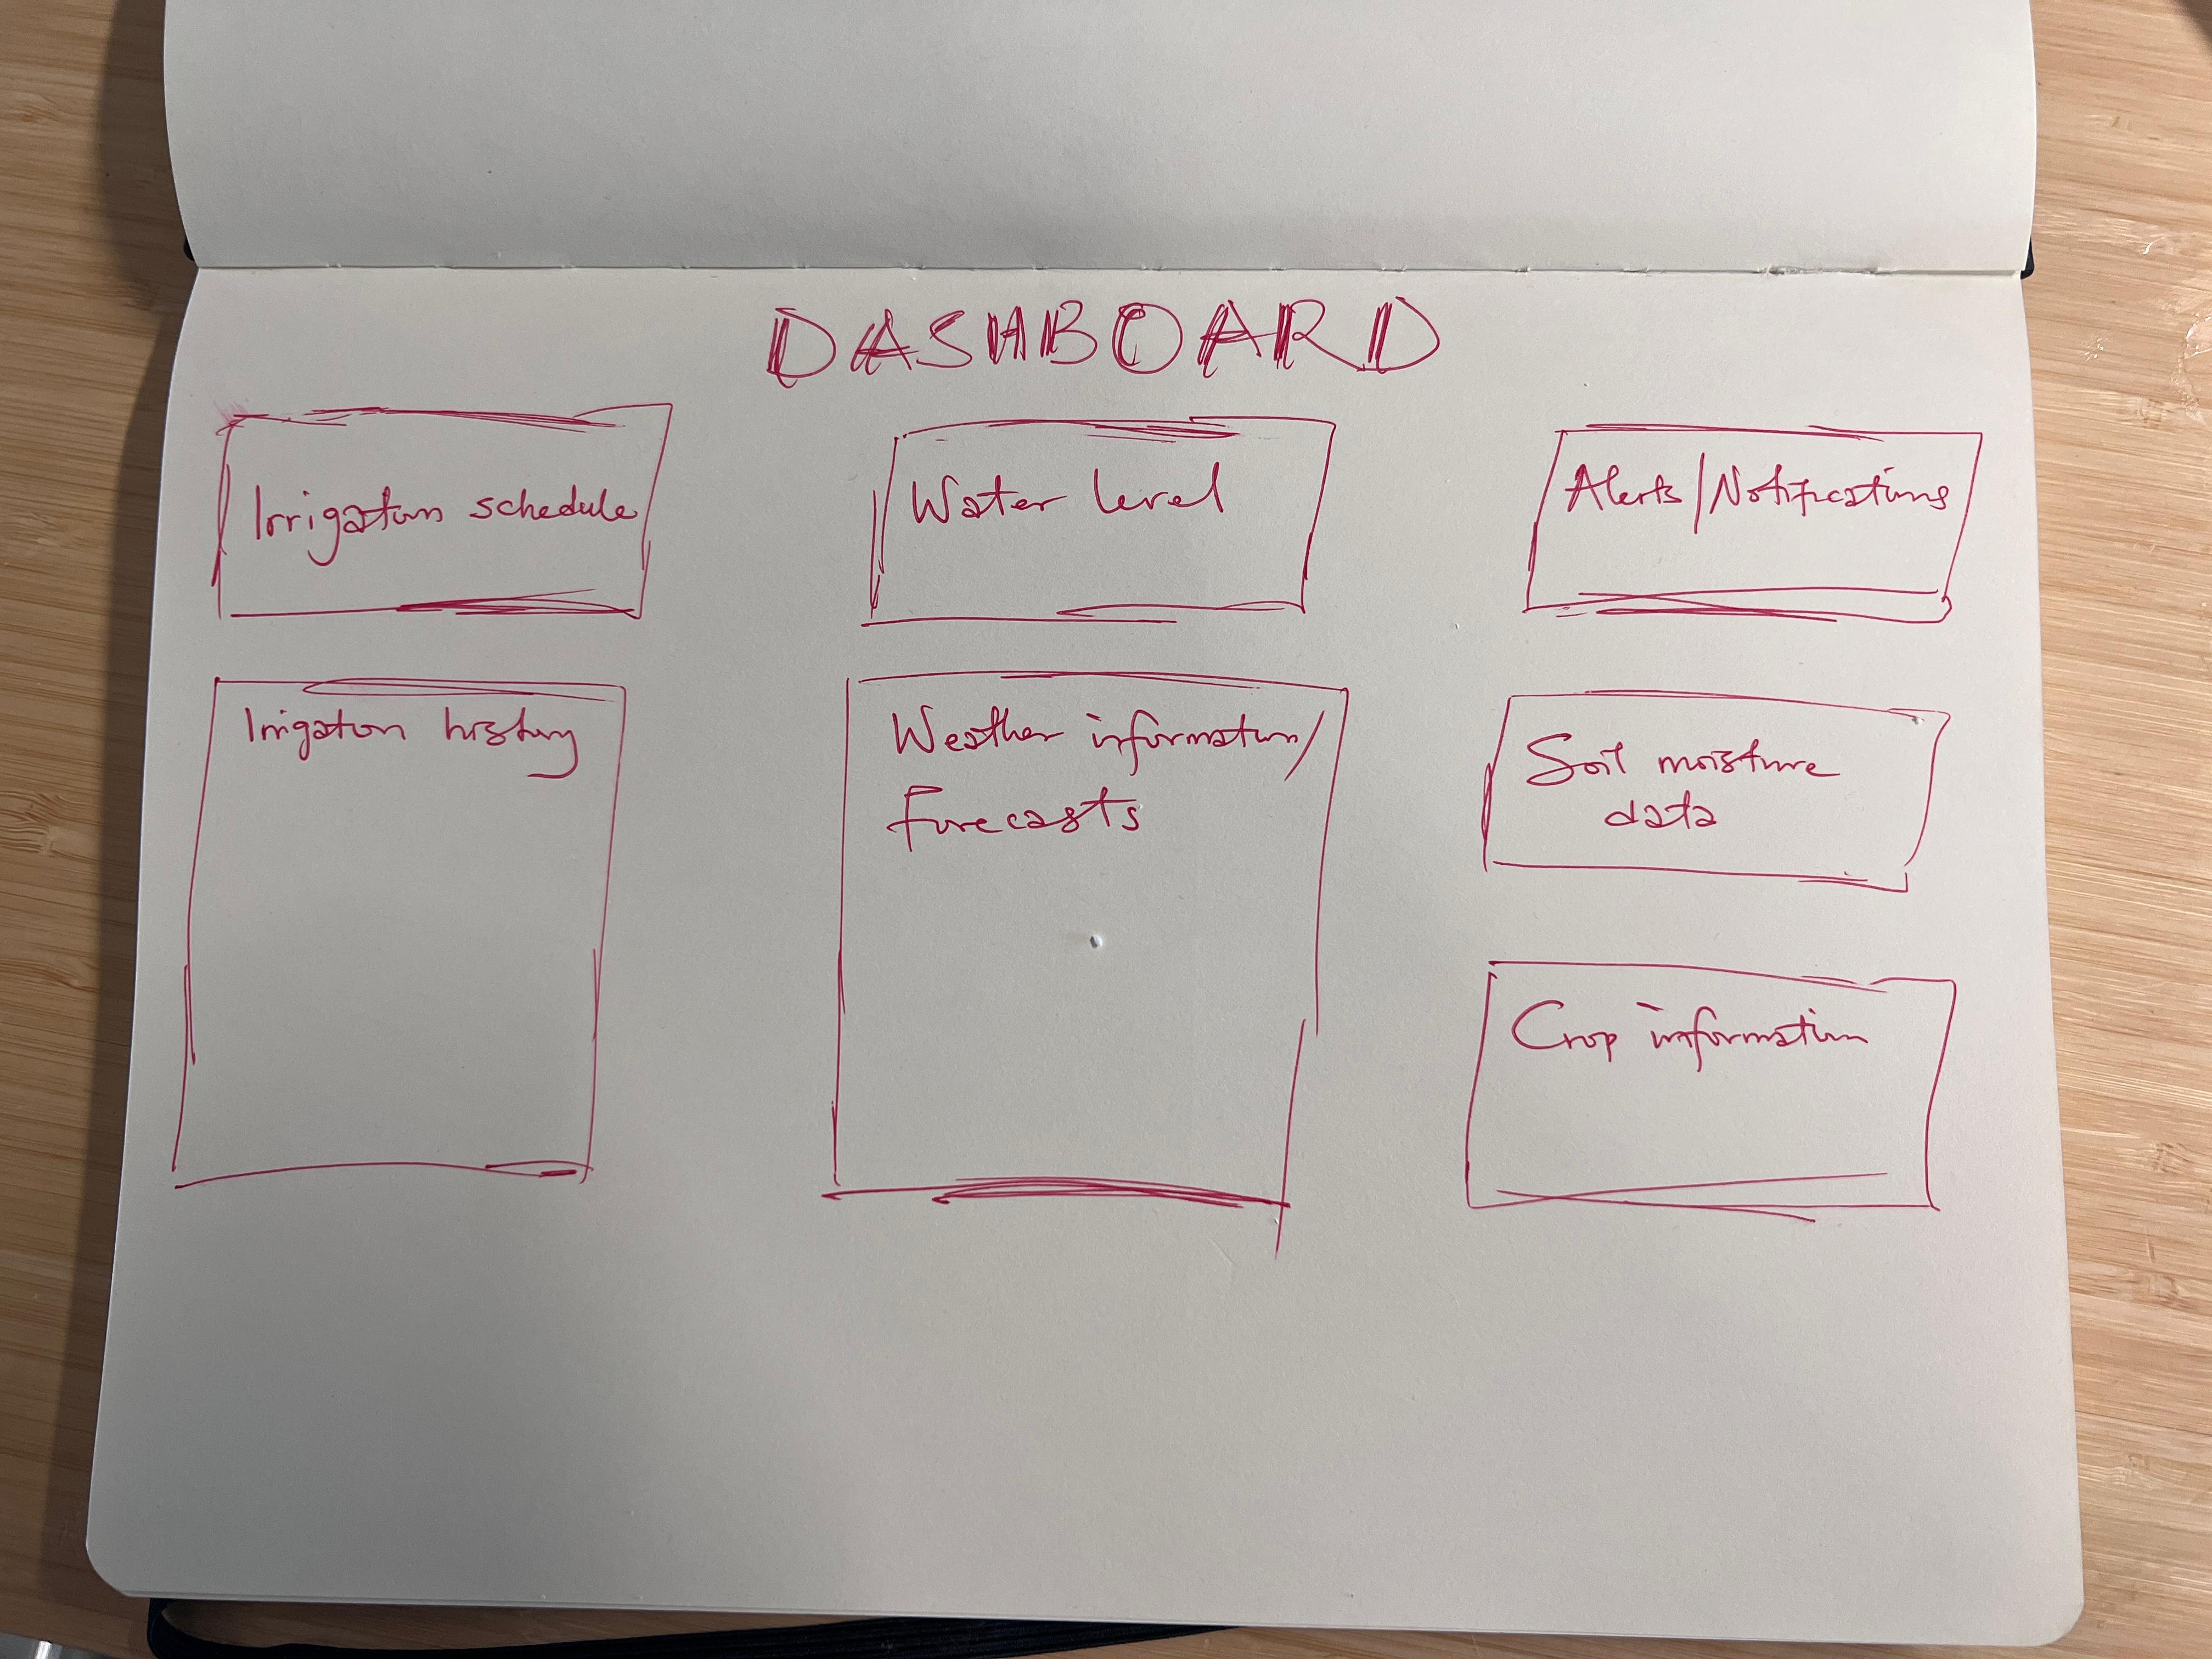 DASHBOARD
Irrigation schedule
Water level
Alerts/Notifications
Irrigation history
Weather information/
Forecasts
Soil moisture
data
Crop information